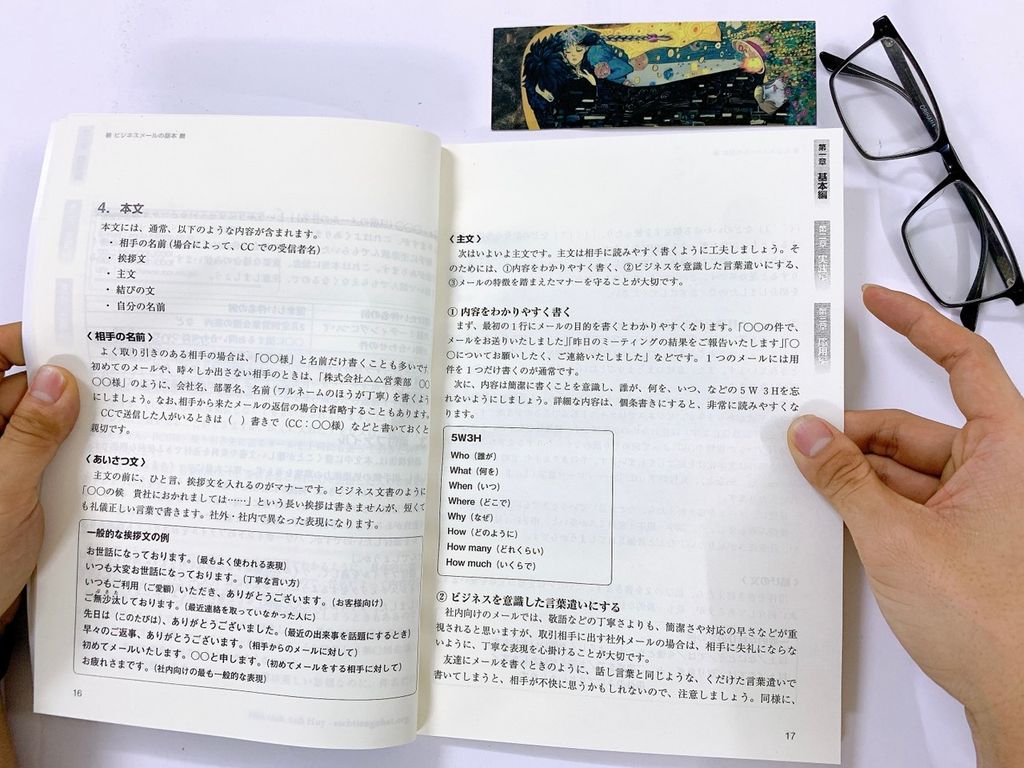 ■ ビジネスメールの基本 ■
4. 本文
本文には、通常、以下のような内容が含まれます。
・ 相手の名前 (場合によって、CC での受信者名)
・ 挨拶文
・ 主文
・ 結びの文
・ 自分の名前
〈 相手の名前 〉
よく取り引きのある相手の場合は、「〇〇様」と名前だけ書くことも多いです。
初めてのメールや、時々しか出さない相手のときは、「株式会社△△営業部 〇〇
〇〇様」のように、会社名、部署名、名前 (フルネームのほうが丁寧) を書くよう
にしましょう。なお、相手から来たメールの返信の場合は省略することもあります。
CCで送信した人がいるときは ( ) 書きで (CC:〇〇様) などと書いておくと
親切です。
〈 あいさつ文 〉
主文の前に、ひと言、挨拶文を入れるのがマナーです。ビジネス文書のように
「〇〇の候 貴社におかれましては……」という長い挨拶は書きませんが、短くて
も礼儀正しい言葉で書きます。社外・社内で異なった表現になります。
一般的な挨拶文の例
お世話になっております。(最もよく使われる表現)
いつも大変お世話になっております。(丁寧な言い方)
いつもご利用 (ご愛顧) いただき、ありがとうございます。(お客様向け)
ご無沙汰しております。(最近連絡を取っていなかった人に)
先日は (このたびは)、ありがとうございました。(最近の出来事を話題にするとき)
早々のご返事、ありがとうございます。(相手からのメールに対して)
初めてメールいたします。〇〇と申します。(初めてメールをする相手に対して)
お疲れさまです。(社内向けの最も一般的な表現)
16
〈 主文 〉
次はいよいよ主文です。主文は相手に読みやすく書くように工夫しましょう。そ
のためには、①内容をわかりやすく書く、②ビジネスを意識した言葉遣いにする、
③メールの特徴を踏まえたマナーを守ることが大切です。
① 内容をわかりやすく書く
まず、最初の1行にメールの目的を書くとわかりやすくなります。「〇〇の件で、
メールをお送りいたしました」「昨日のミーティングの結果をご報告いたします」「〇
〇についてお願いしたく、ご連絡いたしました」などです。1つのメールには用
件を1つだけ書くのが通常です。
次に、内容は簡潔に書くことを意識し、誰が、何を、いつ、などの5W3Hを忘
れないようにしましょう。詳細な内容は、個条書きにすると、非常に読みやすくな
ります。
5W3H
Who (誰が)
What (何を)
When (いつ)
Where (どこで)
Why (なぜ)
How (どのように)
How many (どれくらい)
How much (いくらで)
② ビジネスを意識した言葉遣いにする
社内向けのメールでは、敬語などの丁寧さよりも、簡潔さや対応の早さなどが重
視されると思いますが、取引相手に出す社外メールの場合は、相手に失礼にならな
いように、丁寧な表現を心掛けることが大切です。
友達にメールを書くときのように、話し言葉と同じような、くだけた言葉遣いで
書いてしまうと、相手が不快に思うかもしれないので、注意しましょう。同様に、
17
第一章 基本編
第二章 実践編
第三章 応用編